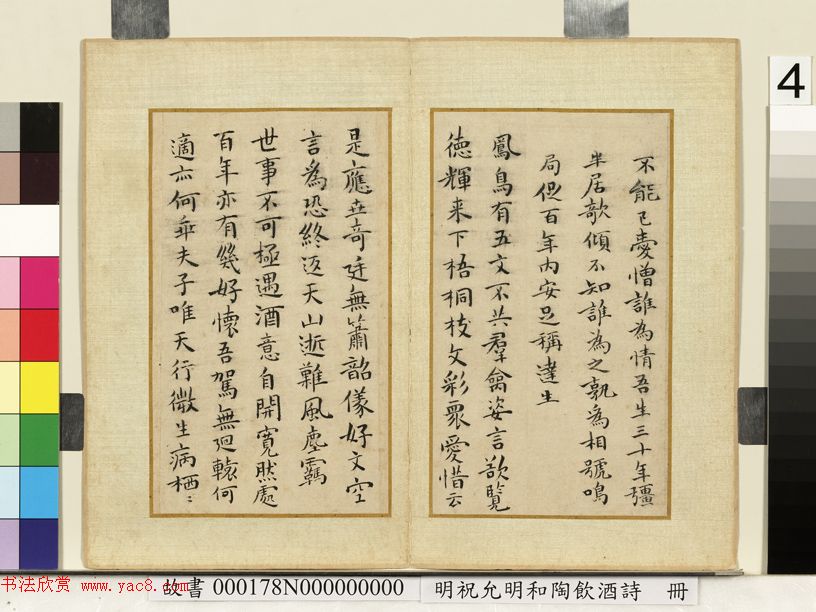 4
不能已憂憎誰為情吾生三十年彊
半居欹傾不知誰為之孰為相號鳴
局促百年内安足稱達生
鳳鳥有五文不共羣禽姿言欲覽
德輝来下梧桐枝文彩眾愛惜云
是應世奇廷無簫韶儀好文空
言為恐終返天山逝難風塵羈
世事不可極遇酒意自開寬然處
百年亦有幾好懷吾駕無迴轅何
適亦何乖夫子唯天行微生病栖〻
书法欣赏 www.yac8.com 故書 000178N000000000 明祝允明和陶飲酒詩 冊